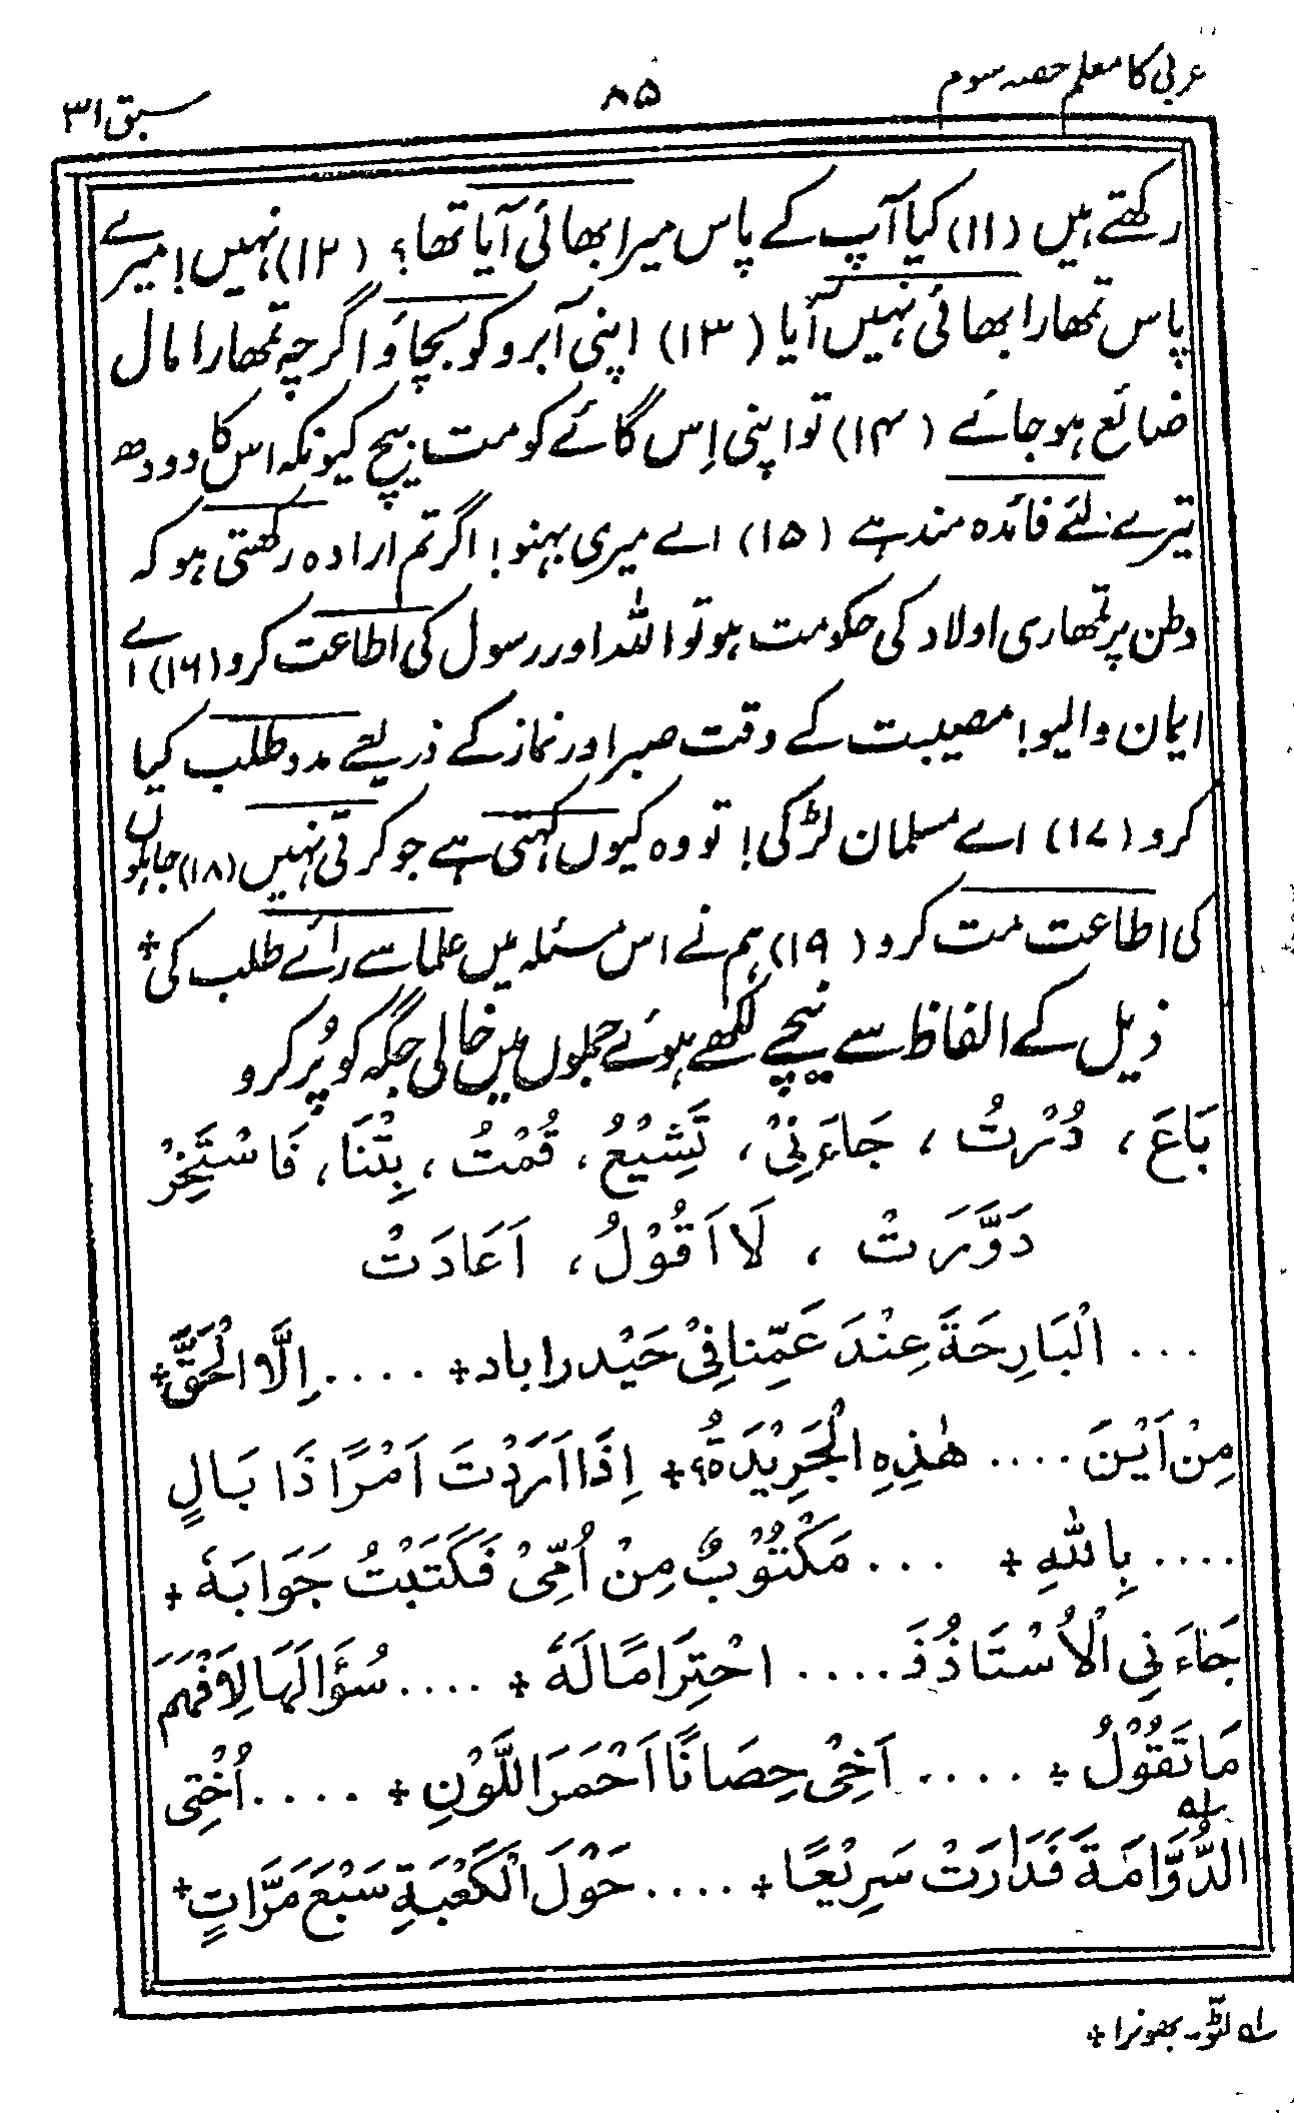 عربی کا معلم حصہ سوم ۸۵ سبق ۳۱
رکھتے ہیں (۱۱) کیا آپ کے پاس میرا بھائی آیا تھا؟ (۱۲) نہیں! میرے
پاس تمھارا بھائی نہیں آیا (۱۳) اپنی آبرو کو بچاؤ اگرچہ تمھارا مال
ضائع ہوجائے (۱۴) تو اپنی اِس گائے کو مت بیچ کیونکہ اس کا دودھ
تیرے لئے فائدہ مند ہے (۱۵) اے میری بہنو! اگر تم ارادہ رکھتی ہو کہ
وطن پر تمھاری اولاد کی حکومت ہو تو اللہ اور رسول کی اطاعت کرو (۱۶) اے
ایمان والیو! مصیبت کے وقت صبر اور نماز کے ذریعے مدد طلب کیا
کرو (۱۷) اے مسلمان لڑکی! تو وہ کیوں کہتی ہے جو کرتی نہیں (۱۸) جاہلوں
کی اطاعت مت کرو (۱۹) ہم نے اس مسئلہ میں علما سے رائے طلب کی +
ذیل کے الفاظ سے نیچے لکھے ہوئے جملوں میں خالی جگہ کو پُر کرو
بَاعَ، دُرْتُ، جَاءَنِیْ، تَشِیْعُ، قُمْتُ، بِتْنَا، فَاسْتَخِرْ
دَوَّرَتْ، لَا اَقُوْلُ، اَعَادَتْ
... الْبَارِحَةَ عِنْدَ عَمِّنَا فِیْ حَیْدراباد + .... اِلَّا الْحَقَّ +
مِنْ اَیْنَ .... هٰذِهِ الْجَرِیْدَةُ؟ + اِذَا اَرَدْتَ اَمْرًا ذَا بَالٍ
.... بِاللّٰهِ + ... مَكْتُوْبٌ مِنْ اُمِّیْ فَكَتَبْتُ جَوَابَهٗ +
جَاءَنِی الْاُسْتَاذُ فَـ .... احْتِرَامًا لَهٗ + .... سُؤَالَهَا لِاَفْهَمَ
مَا تَقُوْلُ + .... اَخِیْ حِصَانًا اَحْمَرَ اللَّوْنِ + .... اُخْتِی
الدُّوَّامَةَ ؎۱ فَدَارَتْ سَرِیْعًا + .... حَوْلَ الْكَعْبَةِ سَبْعَ مَرَّاتٍ +
؎۱ لٹّو۔ بھونرا +